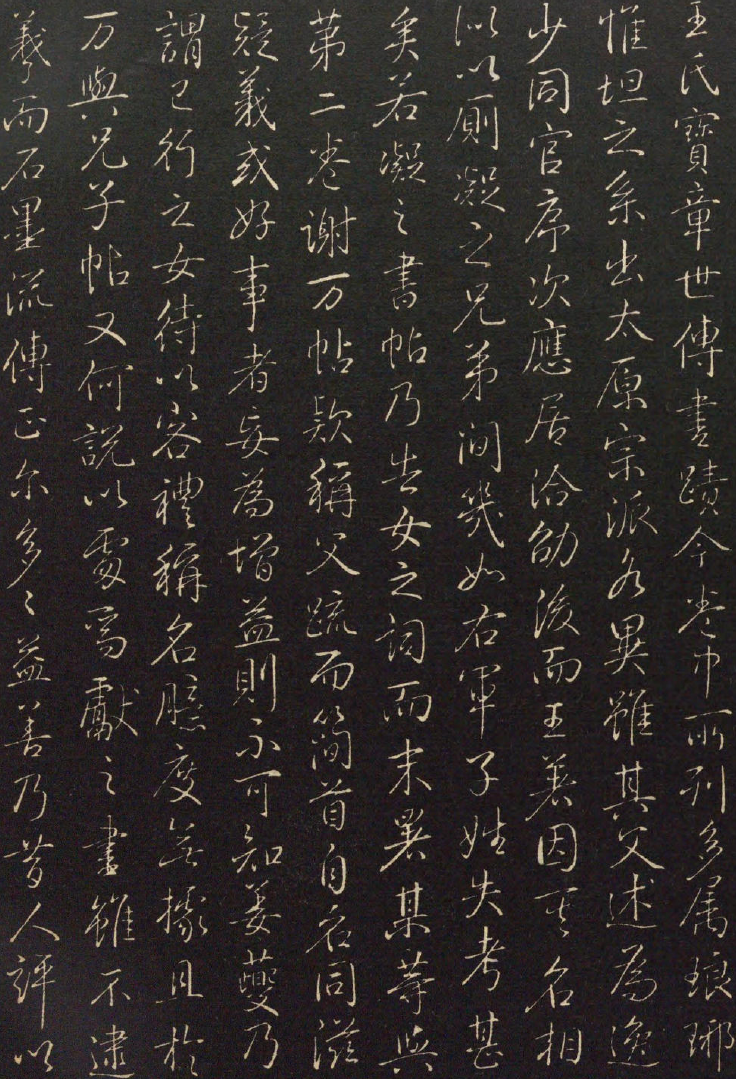 王氏寶章世傳書蹟今卷中所列多属琅琊
惟坦之系出太原宗派各異雖其父述為逸
少同官序次應居洽劭後而王著因其名相
似以厠凝之兄弟間幾如右軍子姓失考甚
矣若凝之書帖乃告女之詞而末署某等與
第二卷謝万帖款稱父疏而簡首自名同滋
疑義或好事者妄為增益則不可知姜夔乃
謂已行之女待以客禮稱名臆度無據且於
万與兄子帖又何說以處焉獻之書雖不逮
羲而石墨流傳正尔多多益善乃昔人評以